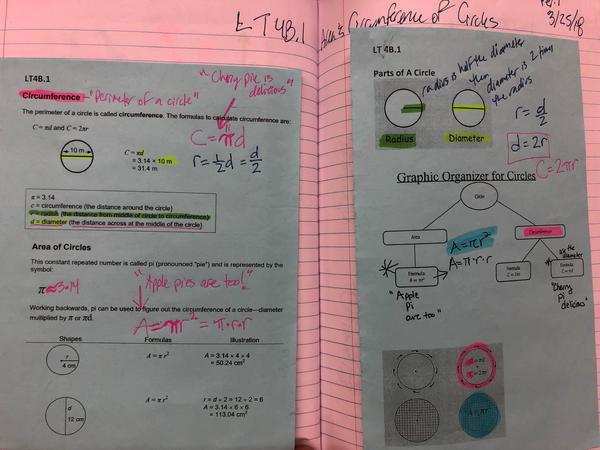 LT 4B.1 Area & Circumference of Circles
3/25/18
LT4B.1
Circumference - "Perimeter of a circle"
"Cherry pie is
delicious"
The perimeter of a circle is called circumference. The formulas to calculate circumference are:
C = πd and C = 2πr
C = πd
10 m
C = πd
= 3.14 × 10 m
= 31.4 m
r = ½d = d/2
π = 3.14
c = circumference (the distance around the circle)
r = radius (the distance from middle of circle to circumference)
d = diameter (the distance across at the middle of the circle)
Area of Circles
This constant repeated number is called pi (pronounced "pie") and is represented by the
symbol:
π ≈ 3.14
"Apple pies are too!"
Working backwards, pi can be used to figure out the circumference of a circle—diameter
multiplied by π or πd.
A = πr² = π·r·r
Shapes Formulas Illustration
r
4 cm
A = π r²
A = 3.14 × 4 × 4
= 50.24 cm²
d
12 cm
A = π r²
r = d ÷ 2 = 12 ÷ 2 = 6
A = 3.14 × 6 × 6
= 113.04 cm²
LT 4B.1
Parts of A Circle
radius is half the diameter
then
diameter is 2 times
the radius
Radius
Diameter
r = d/2
d = 2r
C = 2πr
Graphic Organizer for Circles
Circle
Area
Circumference
A = πr²
A = π·r·r
Formula
A = πr²
Formula
C = 2πr
Formula
C = πd
the diameter
"Apple
Pi
are too"
"Cherry
Pi
delicious"
C = πd
C = 2πr
A = πr²